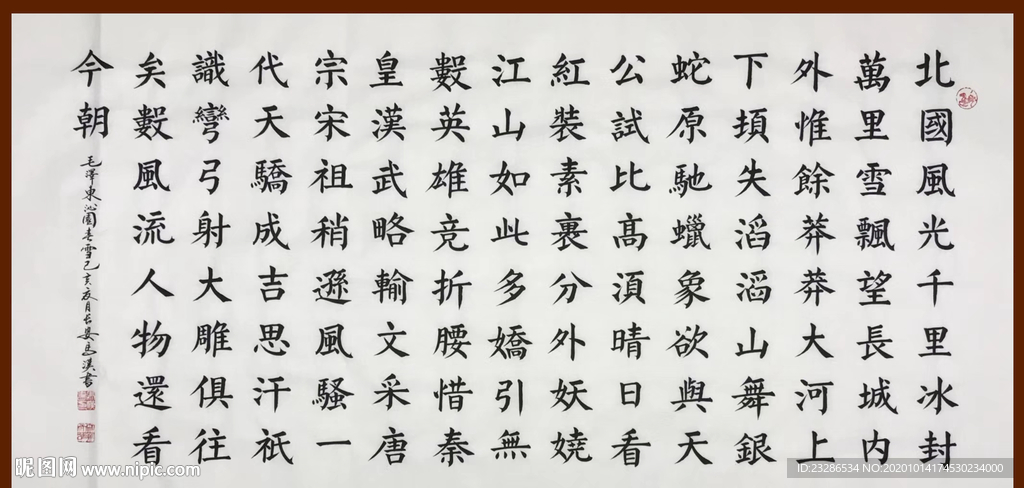 北國風光千里冰封
萬里雪飄望長城内
外惟餘莽莽大河上
下頓失滔滔山舞銀
蛇原馳蠟象欲與天
公試比高須晴日看
紅裝素裹分外妖嬈
江山如此多嬌引無
數英雄竞折腰惜秦
皇漢武略輸文采唐
宗宋祖稍遜風騷一
代天驕成吉思汗祇
識彎弓射大雕俱往
矣數風流人物還看
今朝
毛澤東沁園春雪己亥夏月长安馬漢書
昵图网 www.nipic.com
ID:23286534 NO:20201014174530234000